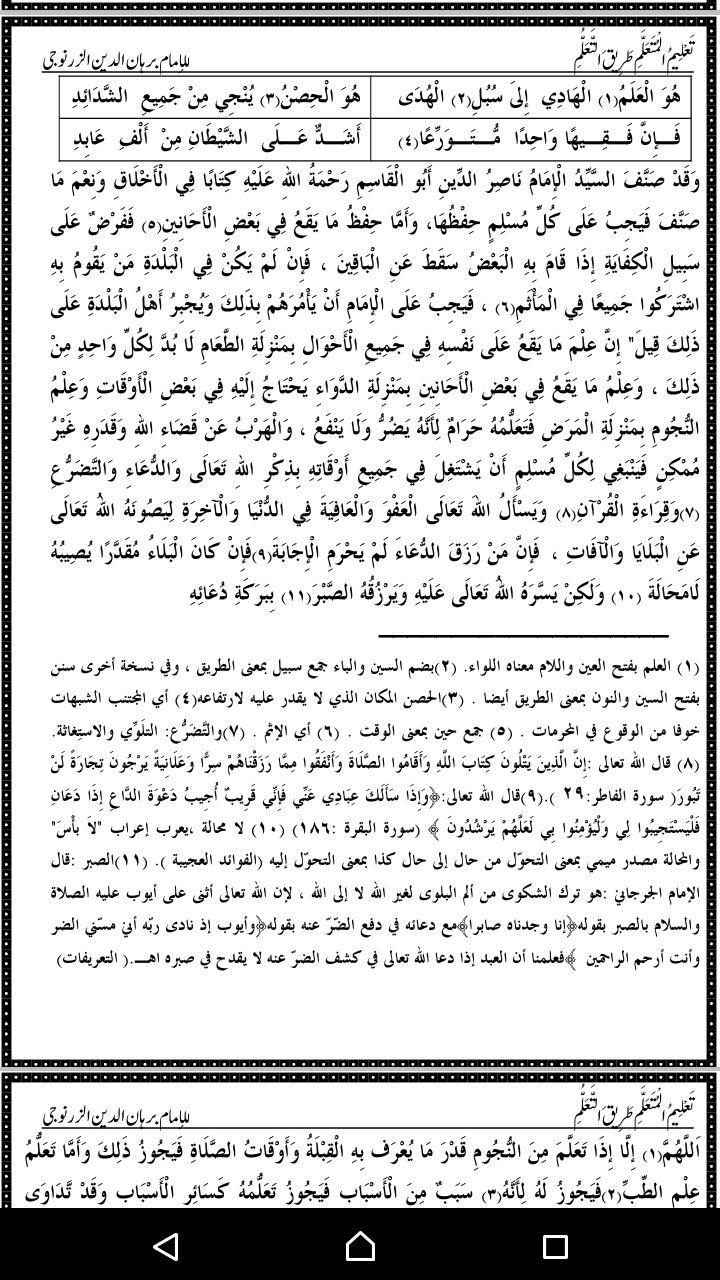 تَعْلِيمُ الْمُتَعَلِّمِ طَرِيقَ التَّعَلُّمِ للإمام برہان الدین الزرنوجی
هُوَ الْعَلَمُ(١) الْهَادِي إِلَىٰ سُبُلِ(٢) الْهُدَى هُوَ الْحِصْنُ(٣) يُنْجِي مِنْ جَمِيعِ الشَّدَائِدِ
فَـــإِنَّ فَـــقِـــيهًا وَاحِدًا مُّـــتَـــوَرِّعًا(٤) أَشَـــدُّ عَـــلَى الشَّيْطَانِ مِنْ أَلْفِ عَابِدِ
وَقَدْ صَنَّفَ السَّيِّدُ الْإِمَامُ نَاصِرُ الدِّينِ أَبُو الْقَاسِمِ رَحْمَةُ اللهِ عَلَيْهِ كِتَابًا فِي الْأَخْلَاقِ وَنِعْمَ مَا
صَنَّفَ فَيَجِبُ عَلَى كُلِّ مُسْلِمٍ حِفْظُهَا، وَأَمَّا حِفْظُ مَا يَقَعُ فِي بَعْضِ الْأَحَانِينِ(٥) فَفَرْضٌ عَلَى
سَبِيلِ الْكِفَايَةِ إِذَا قَامَ بِهِ الْبَعْضُ سَقَطَ عَنِ الْبَاقِينَ ، فَإِنْ لَمْ يَكُنْ فِي الْبَلْدَةِ مَنْ يَقُومُ بِهِ
اشْتَرَكُوا جَمِيعًا فِي الْمَأْثَمِ(٦) ، فَيَجِبُ عَلَى الْإِمَامِ أَنْ يَأْمُرَهُمْ بِذَلِكَ وَيُجْبِرُ أَهْلُ الْبَلْدَةِ عَلَى
ذَلِكَ قِيلَ" إِنَّ عِلْمَ مَا يَقَعُ عَلَى نَفْسِهِ فِي جَمِيعِ الْأَحْوَالِ بِمَنْزِلَةِ الطَّعَامِ لَا بُدَّ لِكُلِّ وَاحِدٍ مِنْ
ذَلِكَ ، وَعِلْمُ مَا يَقَعُ فِي بَعْضِ الْأَحَانِينِ بِمَنْزِلَةِ الدَّوَاءِ يَحْتَاجُ إِلَيْهِ فِي بَعْضِ الْأَوْقَاتِ وَعِلْمُ
النُّجُومِ بِمَنْزِلَةِ الْمَرَضِ فَتَعَلُّمُهُ حَرَامٌ لِأَنَّهُ يَضُرُّ وَلَا يَنْفَعُ ، وَالْهَرْبُ عَنْ قَضَاءِ اللهِ وَقَدَرِهِ غَيْرُ
مُمْكِنٍ فَيَنْبَغِي لِكُلِّ مُسْلِمٍ أَنْ يَشْتَغِلَ فِي جَمِيعِ أَوْقَاتِهِ بِذِكْرِ اللهِ تَعَالَى وَالدُّعَاءِ وَالتَّضَرُّعِ
(٧)وَقِرَاءَةِ الْقُرْآنِ(٨) وَيَسْأَلُ اللهَ تَعَالَى الْعَفْوَ وَالْعَافِيَةَ فِي الدُّنْيَا وَالْآخِرَةِ لِيَصُونَهُ اللهُ تَعَالَى
عَنِ الْبَلَايَا وَالْآفَاتِ ، فَإِنَّ مَنْ رَزَقَ الدُّعَاءَ لَمْ يَحْرِمِ الْإِجَابَةَ(٩)فَإِنْ كَانَ الْبَلَاءُ مُقَدَّرًا يُصِيبُهُ
لَامَحَالَةَ (١٠) وَلَكِنْ يَسَّرَهُ اللهُ تَعَالَى عَلَيْهِ وَيَرْزُقُهُ الصَّبْرَ(١١) بِبَرَكَةِ دُعَائِهِ
(١) العلم بفتح العين واللام معناه اللواء. (٢)بضم السين والباء جمع سبيل بمعنى الطريق ، وفي نسخة أخرى سنن
بفتح السين والنون بمعنى الطريق أيضا . (٣)الحصن المكان الذي لا يقدر عليه لارتفاعه(٤) أي المجتنب الشبهات
خوفا من الوقوع في المحرمات . (٥) جمع حين بمعنى الوقت . (٦) أي الإثم . (٧)والتَّضَرُّع: التلَوِّي والاستِغاثة.
(٨) قال الله تعالى :إِنَّ الَّذِينَ يَتْلُونَ كِتَابَ اللَّهِ وَأَقَامُوا الصَّلَاةَ وَأَنْفَقُوا مِمَّا رَزَقْنَاهُمْ سِرًّا وَعَلَانِيَةً يَرْجُونَ تِجَارَةً لَنْ
تَبُورَ( سورة الفاطر:٢٩ ).(٩)قال الله تعالى:﴿وَإِذَا سَأَلَكَ عِبَادِي عَنِّي فَإِنِّي قَرِيبٌ أُجِيبُ دَعْوَةَ الدَّاعِ إِذَا دَعَانِ
فَلْيَسْتَجِيبُوا لِي وَلْيُؤْمِنُوا بِي لَعَلَّهُمْ يَرْشُدُونَ ﴾ (سورة البقرة :١٨٦) (١٠) لا محالة ،يعرب إعراب "لاَ بأْسَ"
والمحالة مصدر ميمي بمعنى التحوّل من حال إلى حال كذا بمعنى التحوّل إليه (الفوائد العجيبة ). (١١)الصبر :قال
الإمام الجرجاني :هو ترك الشكوى من ألم البلوى لغير الله لا إلى الله ، لإن الله تعالى أثنى على أيوب عليه الصلاة
والسلام بالصبر بقوله﴿إنا وجدناه صابرا﴾مع دعائه في دفع الضّرّ عنه بقوله﴿وأيوب إذ نادى ربّه أنّي مسّني الضر
وأنت أرحم الراحمين ﴾فعلمنا أن العبد إذا دعا الله تعالى في كشف الضرّ عنه لا يقدح في صبره اهـــ.( التعريفات)
تَعْلِيمُ الْمُتَعَلِّمِ طَرِيقَ التَّعَلُّمِ للإمام برہان الدین الزرنوجی
اَللَّهُمَّ(١) إِلَّا إِذَا تَعَلَّمَ مِنَ النُّجُومِ قَدْرَ مَا يُعْرَف بِهِ الْقِبْلَةُ وَأَوْقَاتُ الصَّلَاةِ فَيَجُوزُ ذَلِكَ وَأَمَّا تَعَلُّمُ
عِلْمِ الطِّبِّ(٢)فَيَجُوزُ لَهُ لِأَنَّهُ(٣) سَبَبٌ مِنَ الْأَسْبَابِ فَيَجُوزُ تَعَلُّمُهُ كَسَائِرِ الْأَسْبَابِ وَقَدْ تَدَاوَى